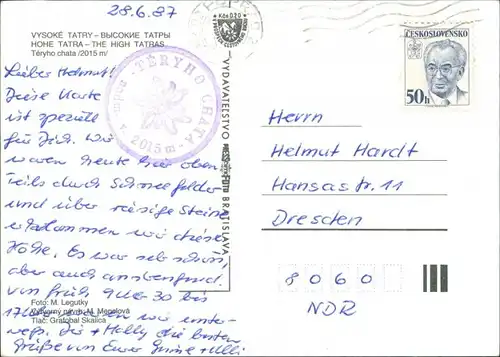 28.6.87
VYSOKÉ TATRY – ВЫСОКИЕ ТАТРЫ
HOHE TATRA – THE HIGH TATRAS
Téryho chata /2015 m/
Lieber Helmut!
Diese Karte
ist speziell
für Dich. Wir
waren heute hier oben.
Teils durch Schneefelder
und über riesige Steine
erklommen wir diese
Höhe. Es war sehr schön,
aber auch anstrengend.
Von früh 9 Uhr 30 bis
17 Uhr waren wir unter-
wegs. Die + Helly die besten
Grüße von Eurer + Ulli
Foto: M. Legutky
Výtvorný návrh: M. Megelová
Tlač: Grafobal Skalica
TÉRYHO CHATA
v. 2015 m
VYDAVATEĽSTVO
BRATISLAVA
Kčs 0.20
ČESKOSLOVENSKO
50h
Herrn
Helmut Hardt
Hansastr. 11
Dresden
8060
NDR